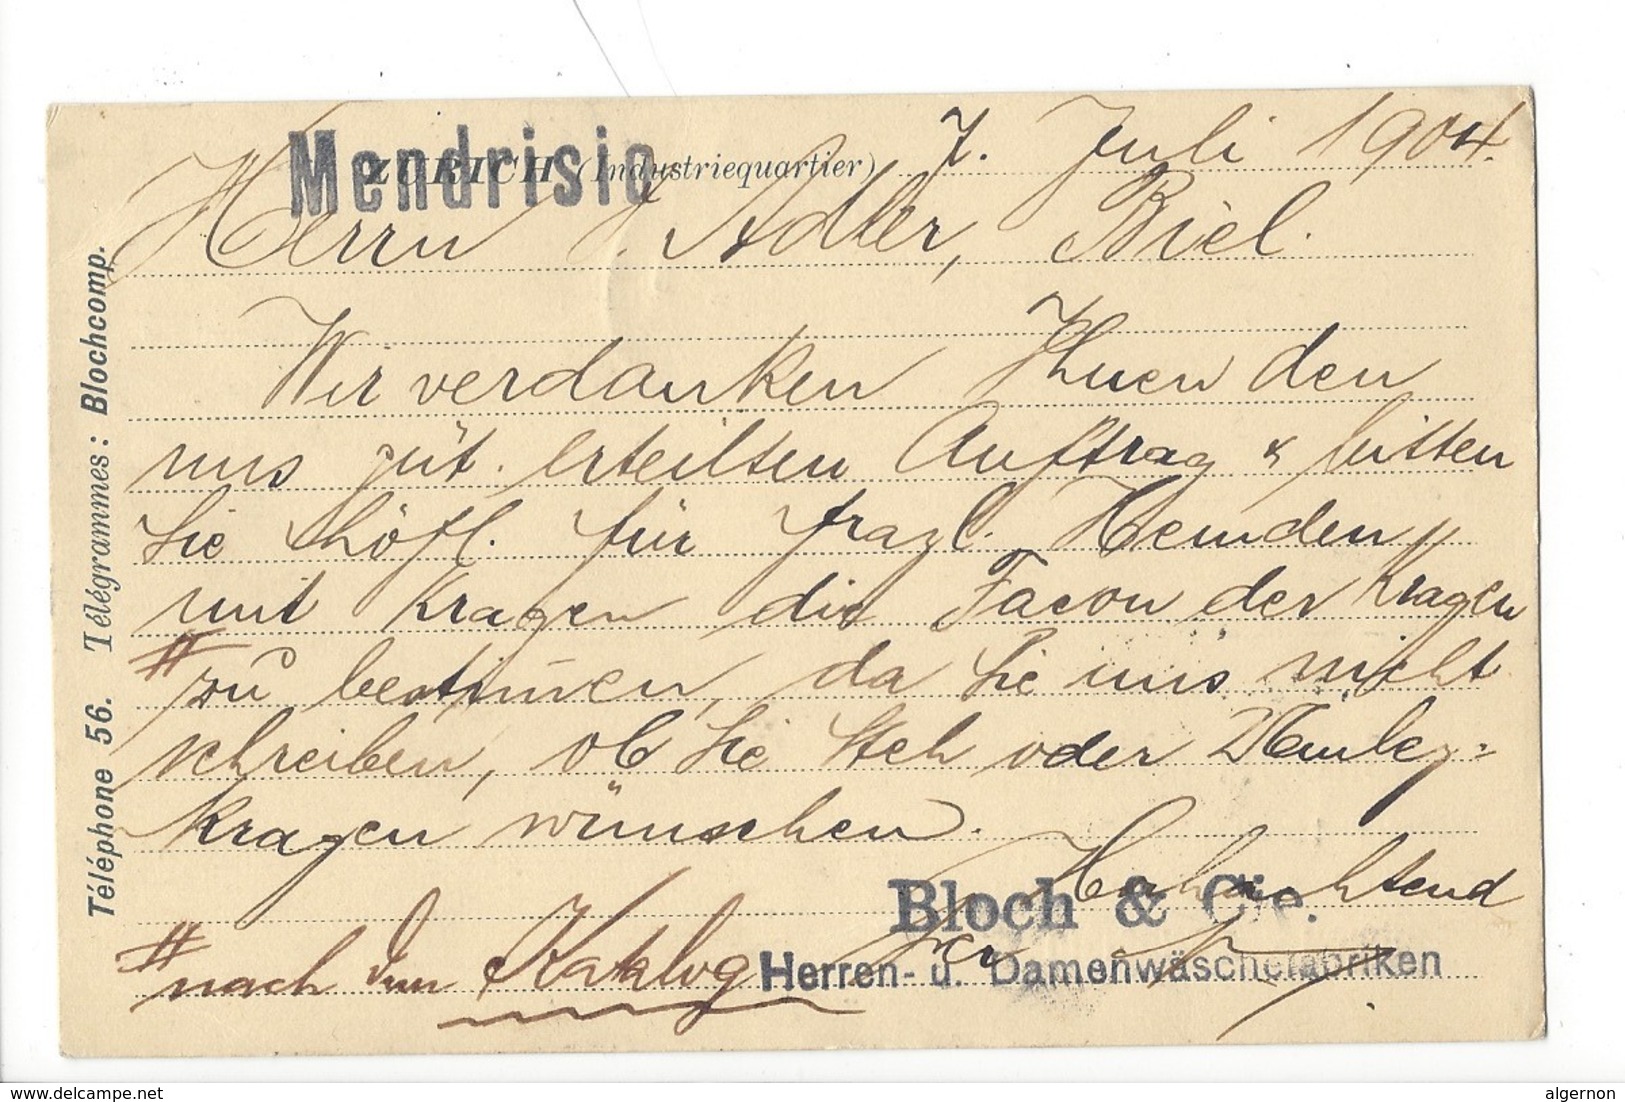 Mendrisio
ZURICH (Industriequartier) 7. Juli 1904.
Herrn J. Adler, Biel.
Wir verdanken Ihnen den
uns güt. erteilten Auftrag & bitten
Sie höfl. für fragl. Hemden
mit Kragen die Facon der Kragen
# zu bestimen, da Sie uns nicht
schreiben, ob Sie Steh oder Umleg-
kragen wünschen.
Hochachtend
Bloch & Cie.
per
Herren- u. Damenwäschefabriken
# nach dem Katalog
Téléphone 56. Télégrammes: Blochcomp.
www.delcampe.net
algernon